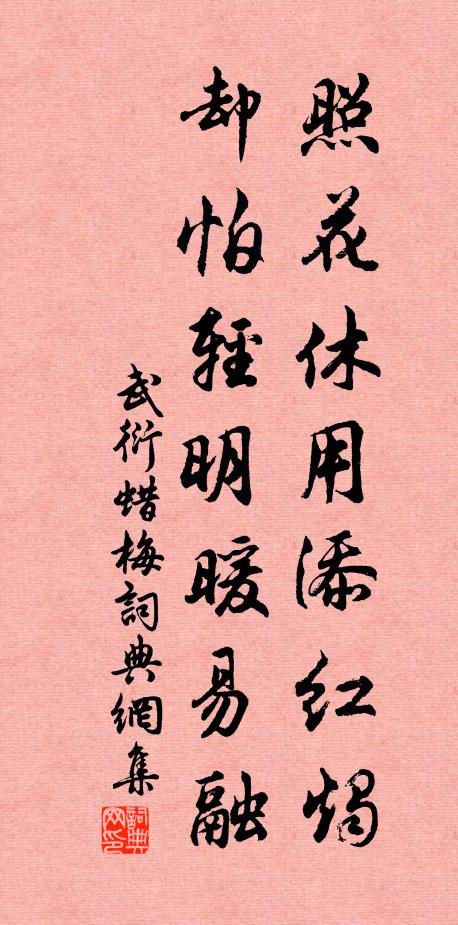 照花休用添红烛
却怕轻明暖易融
武衍蜡梅词典網集
詞典网印